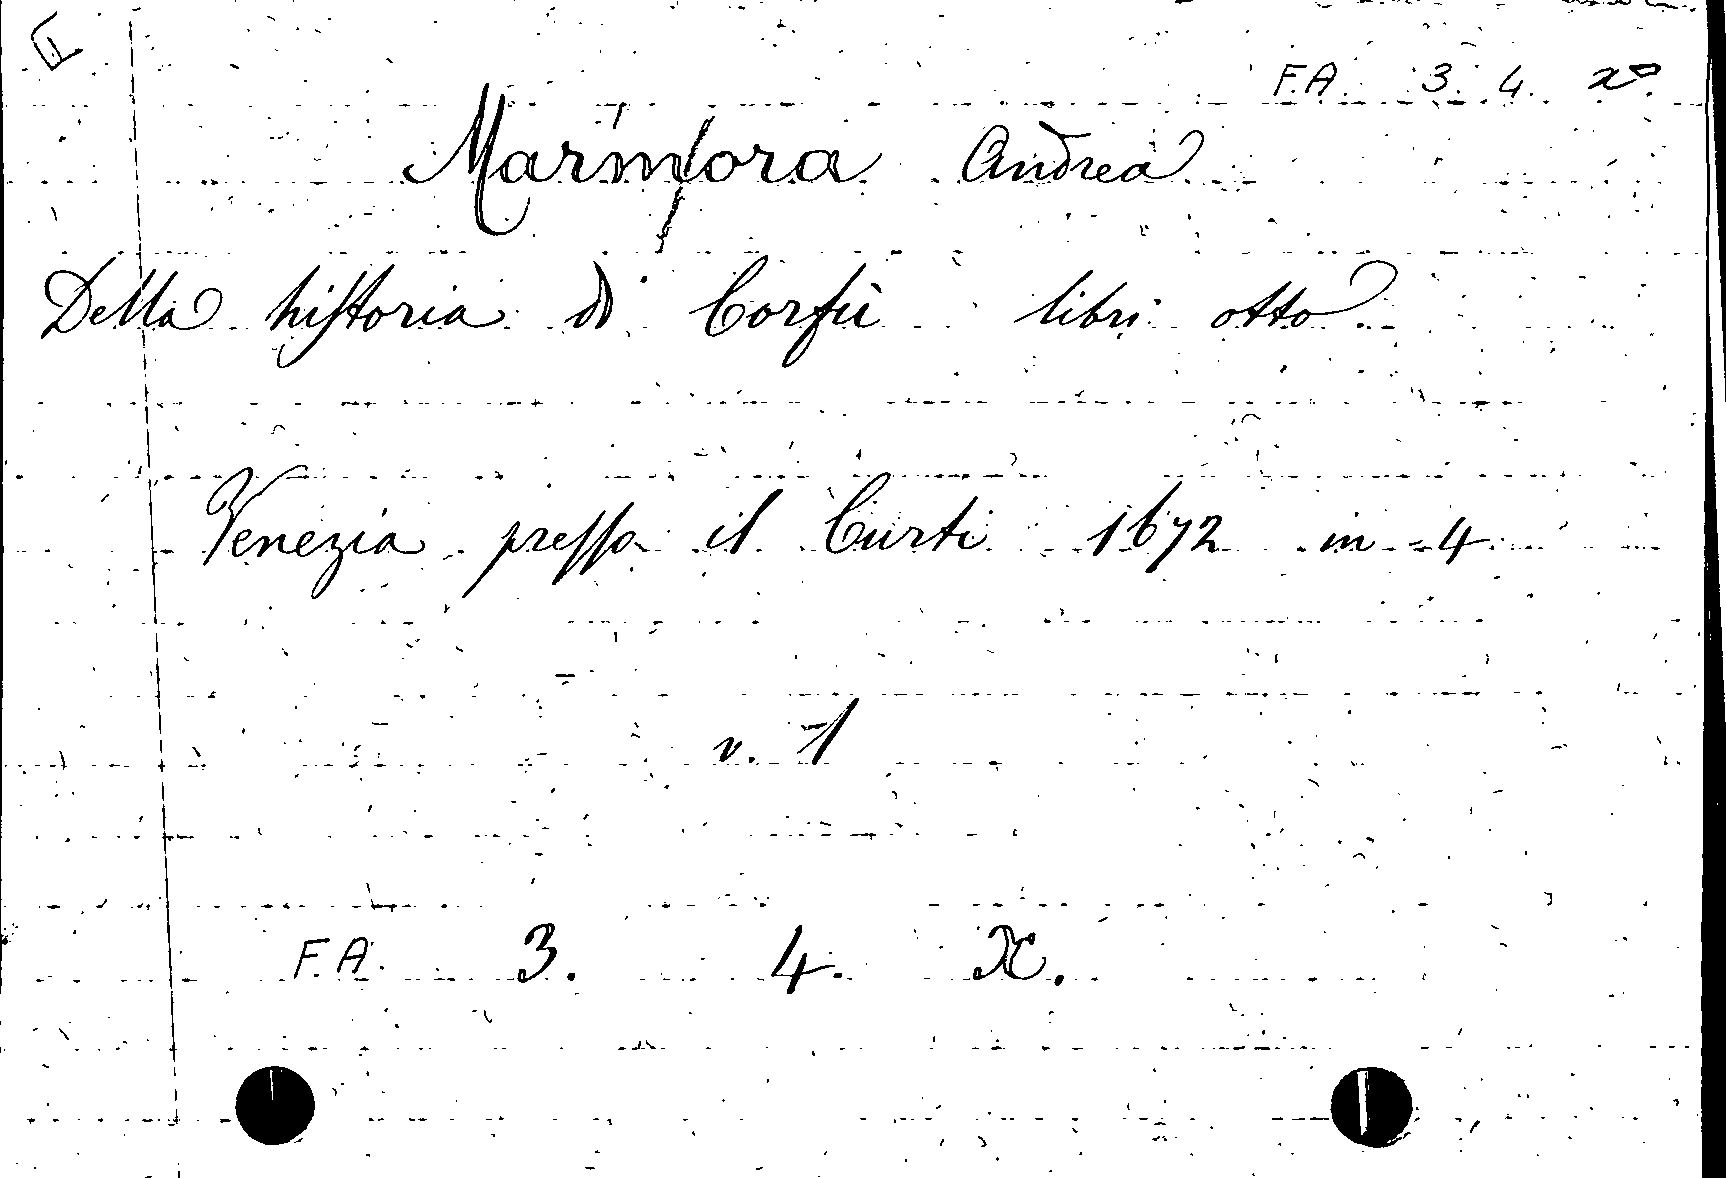 F.A. 3. 4. xº
Marmora Andrea
Della hiſtoria di Corfù libri otto
Venezia preſſo il Curti 1672 in 4
v. 1
F.A. 3. 4. X.